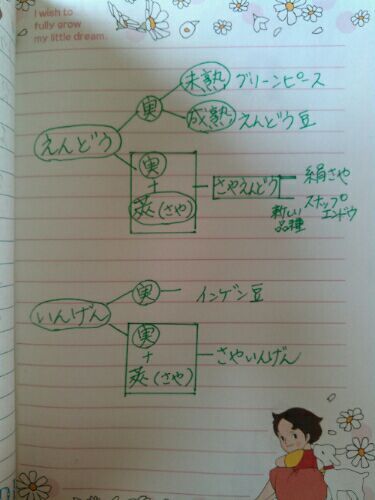 I wish to
fully grow
my little dream.
未熟 グリーンピース
実
成熟 えんどう豆
えんどう
実
+
莢(さや)
さやえんどう
絹さや
スナップ
エンドウ
新しい
品種
いんげん
実 インゲン豆
実
+
莢(さや)
さやいんげん